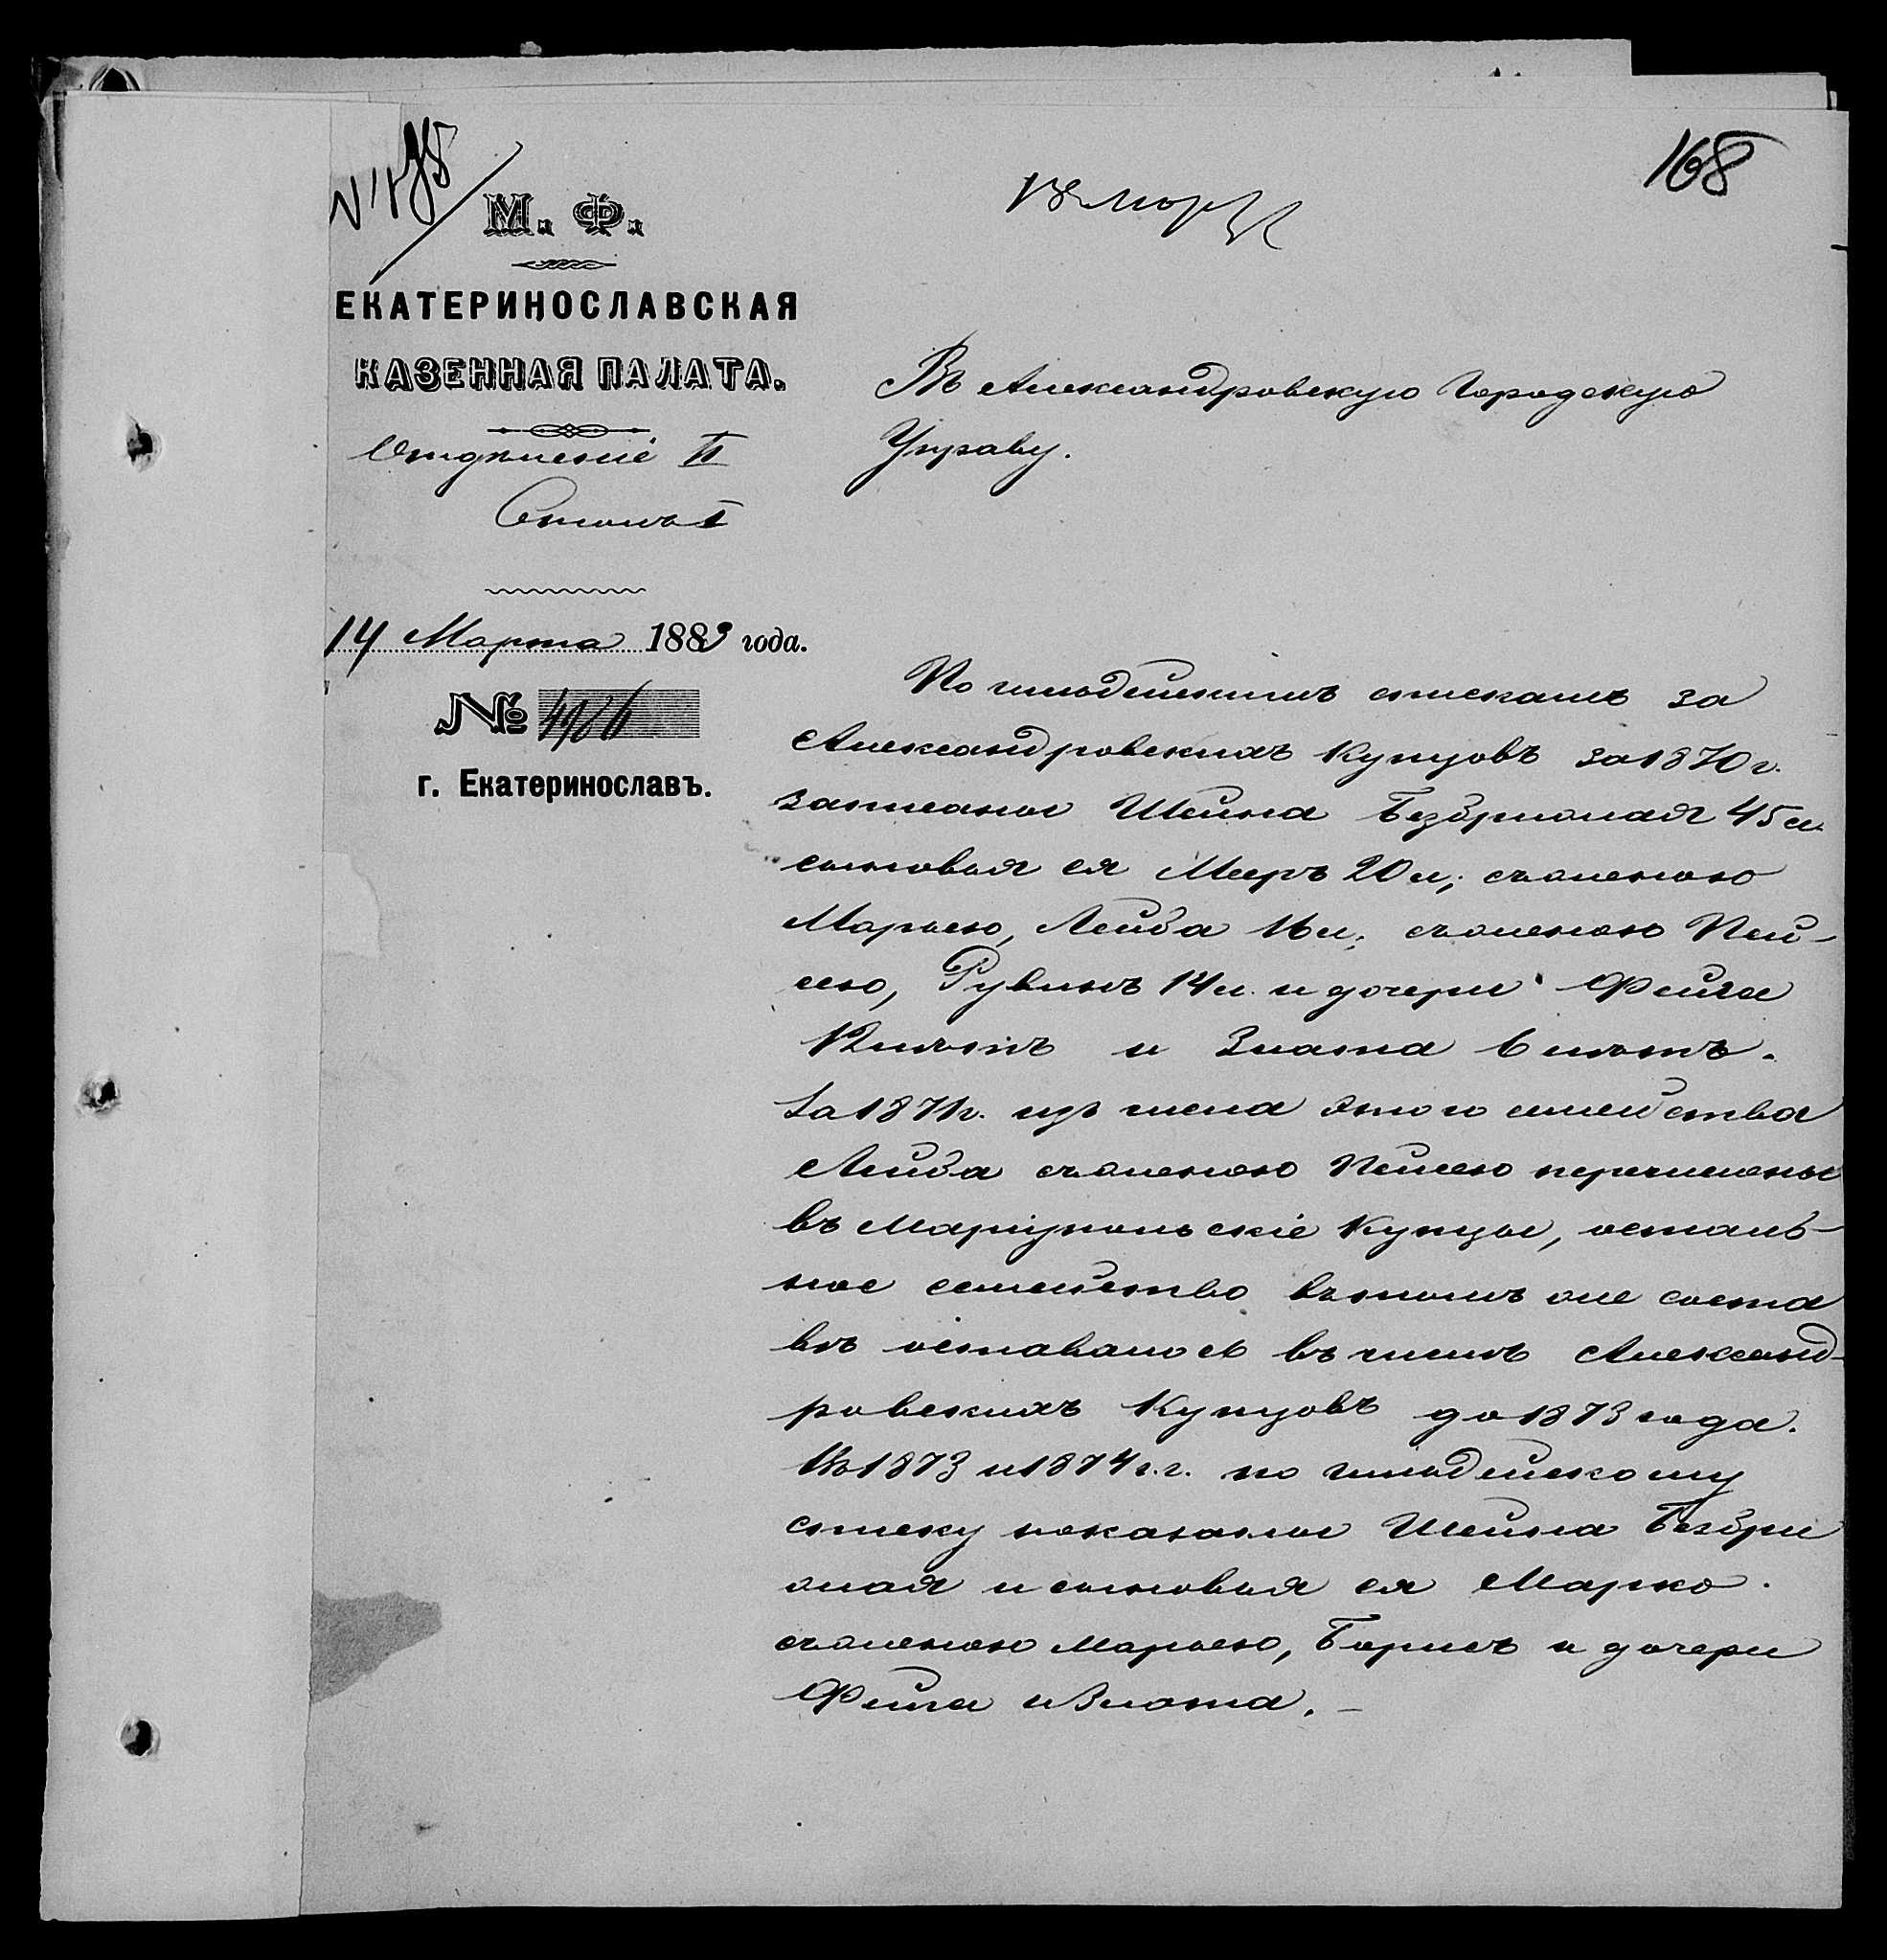 168
18 марта
М. Ф.
ЕКАТЕРИНОСЛАВСКАЯ
КАЗЕННАЯ ПАЛАТА.
Отдѣленіе II
Столъ I
14 Марта 1883 года.
№ 4986
г. Екатеринославъ.
Въ Александровскую Городскую
Управу.
По гильдейскимъ спискамъ за
Александровскихъ Купцовъ за 1870 г.
записаны Шейна Безбрижная 45 л.
сыновья ея Мееръ 20 л; съ женою
Марьею, Лейба 16 л; съ женою Пей-
сею, Рувинъ 14 л. и дочери Фейга
12 лѣтъ и Злата 6 лѣтъ.
За 1871 г. изъ числа этого семейства
Лейба съ женою Пейсею перечислены
въ Маріупольскіе Купцы, осталь-
ное семейство въ томъ же соста
вѣ оставалось въ числѣ Александ-
ровскихъ Купцовъ до 1873 года.
Въ 1873 и 1874 г.г. по гильдейскому
списку показаны Шейна Безбри
жная и сыновья ея Марко
съ женою Марьею, Борисъ и дочери
Фейга и Злата. —